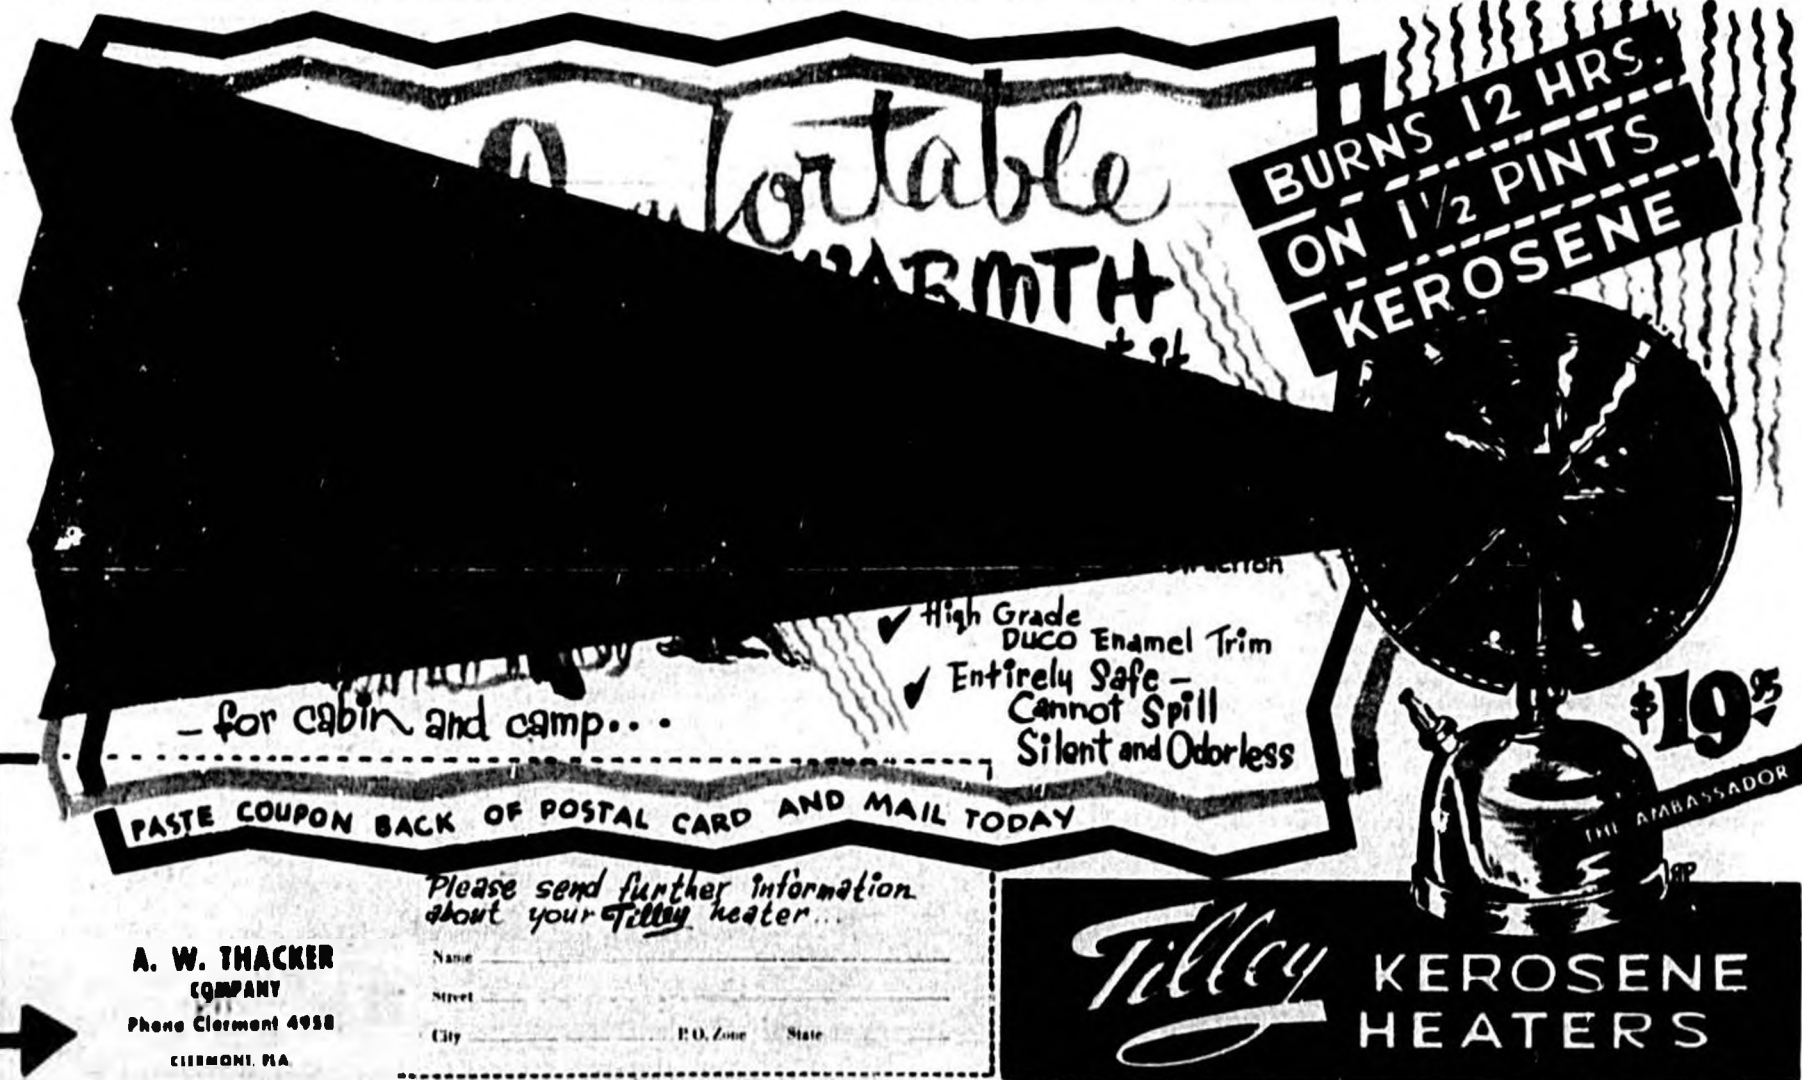 WARMTH
it
BURNS 12 HRS.
ON 1½ PINTS
KEROSENE
✓ High Grade
Duco Enamel Trim
✓ Entirely Safe –
Cannot Spill
Silent and Odorless
– for cabin and camp...
$19.95
THE AMBASSADOR
PASTE COUPON BACK OF POSTAL CARD AND MAIL TODAY
Please send further information
about your Tilley heater...
Name
Street
City P.O. Zone State
A. W. THACKER
COMPANY
Phone Clermont 4958
CLERMONT, FLA.
Tilley KEROSENE
HEATERS